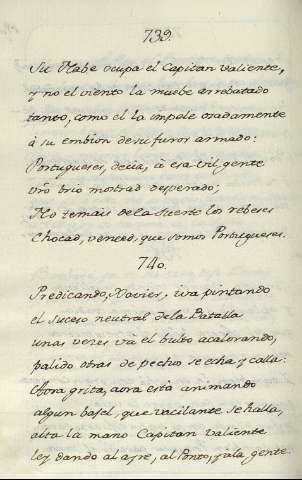 739.
Su Nabe ocupa el Capitan valiente,
y no el viento la muebe arrebatado
tanto, como el la impele osadamente
â su embion de su furor armado:
Portugueses, decia, â esa vil gente
vro brio mostrad desperado;
No temais de la suerte los rebeses
Chocad, venced, que somos Portugueses.
740.
Predicando, Xavier, iva pintando
el suceso neutral de la Batalla
unas veces va el bulto acalorando,
palido otras de pecho se echa y calla:
Aora grita, aora està animando
algun bajel, que vacilante se halla,
alta la mano Capitan valiente
ley dando al ayre, al Ponto, y a la gente.